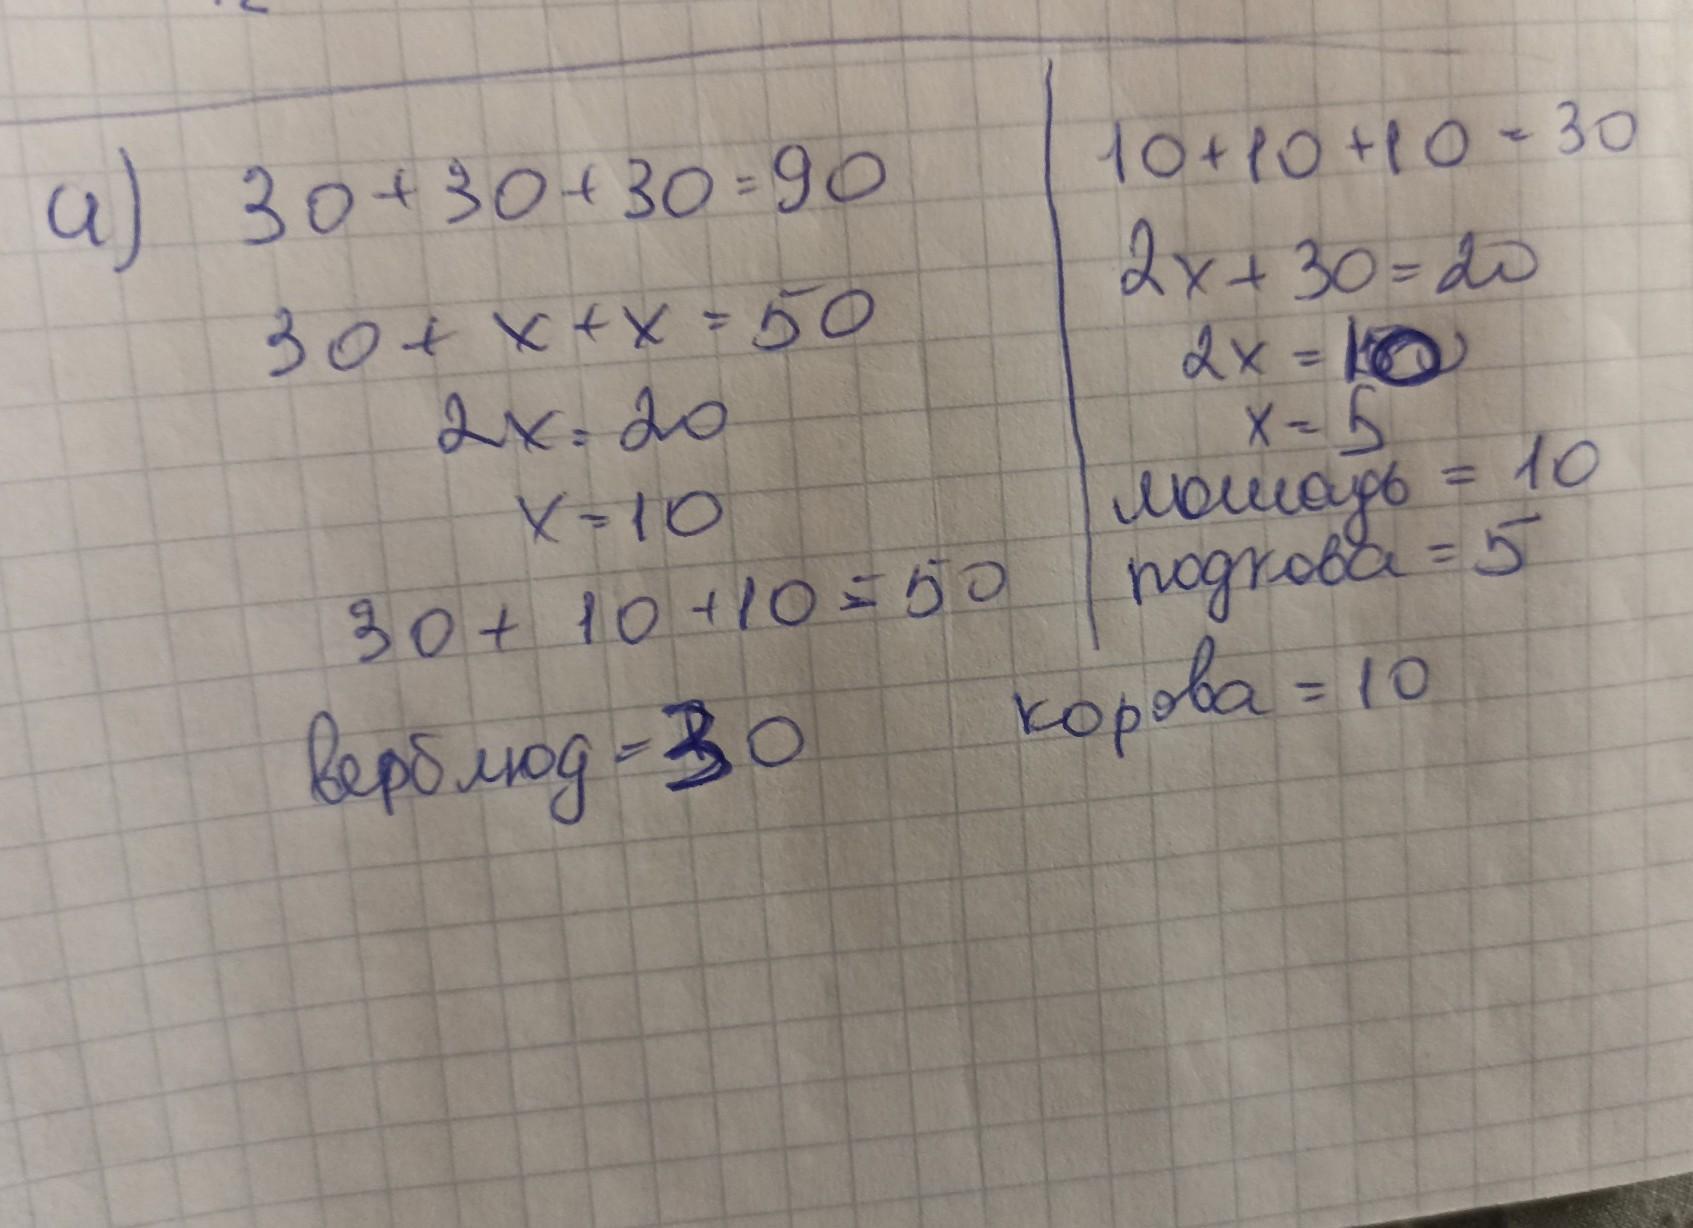 а) 30+30+30=90
30+x+x=50
2x=20
x=10
30+10+10=50
верблюд=30
10+10+10=30
2x+30=20
2x=10
x=5
лошадь=10
подкова=5
корова=10